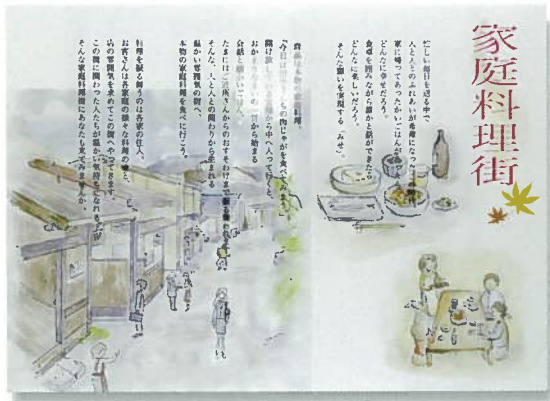 家庭料理街
忙しい毎日を送る中で、
人と人とのふれあいが希薄になったこの時代。
家に帰ってあったかいごはんがあったら
どんなに幸せだろう。
食卓を囲みながら誰かと話ができたら
どんなに楽しいだろう。
そんな願いを実現する「みせ」。
路地は本物の家庭料理。
「今日は田中さんちの肉じゃがを食べてみよう。」
開け放しの玄関から中へ入って行くと、
おかえりなさいの一言から始まる
会話と暖かいごはん。
たまにはご近所さんからのおすそわけまで
そんな、人と人との関わりから生まれる
温かい雰囲気の街へ、
本物の家庭料理を食べに行こう。
料理を振る舞うのは各家の住人。
お客さんは各家庭の様々な料理の味と、
店の雰囲気を求めてこの街へやってきます。
この街に関わった人たちが温かい気持ちになれるような
そんな家庭料理街にあなたも来てみませんか。